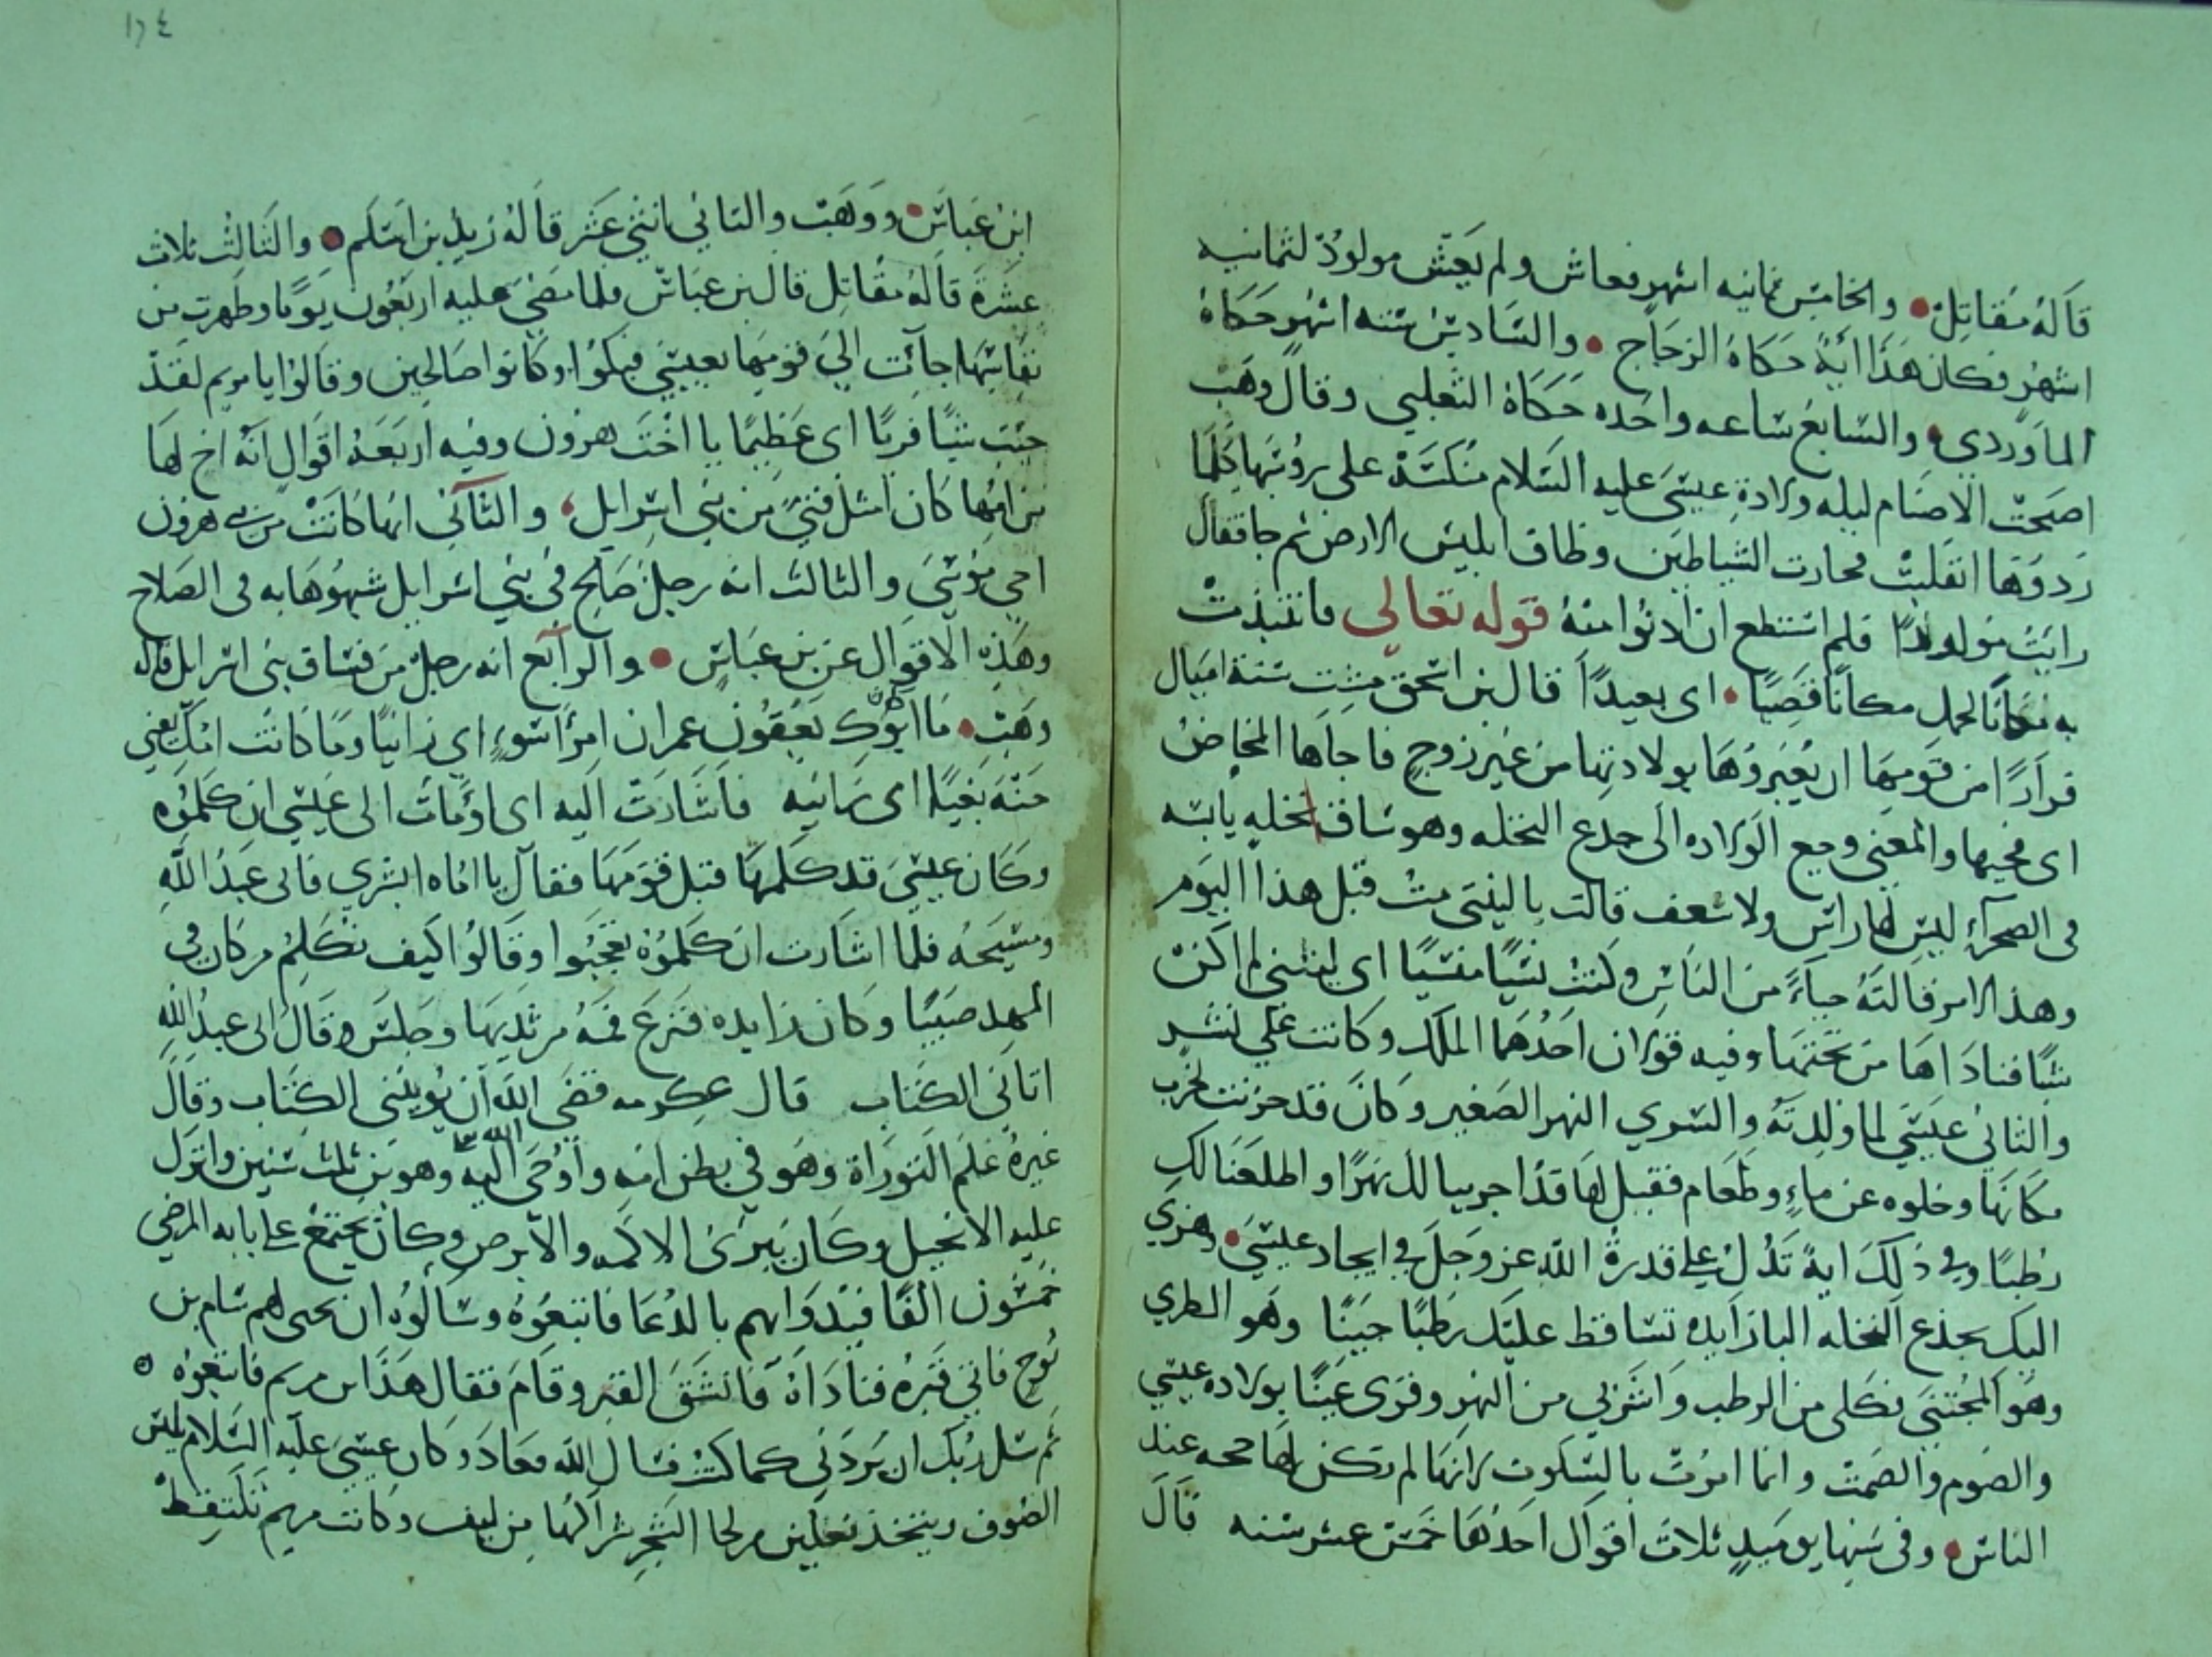 قاله مقاتل والخامس ثمانيه اشهر فعاش ولم يعش مولود لثمانيه
اشهر فكان هذا اية حكاه الزجاج والسادس سته اشهر حكاه
الماوردي والسابع ساعه واحده حكاه الثعلبي وقال وهب
اصبحت الاصنام ليله ولادة عيسى عليه السلام منكسة على رؤسها كلما
ردوها انقلبت فحارت الشياطين وطاف ابليس الارض ثم جا فقال
رايت مولودا فلم استطع ان ادنوا منه قوله تعالى فانتبذت
به مكانا لحمل مكانا قصيا اى بعيدا قال بن اسحق مشت ستة اميال
فرارا من قومها ان يعيروها بولادتها من غير زوج فاجاها المخاض
اى فجيها والمعنى وجع الولاده الى جدع النخله وهو ساق نخله يابسه
فى الصحرآء ليس لها راس ولا سعف قالت ياليتنى مت قبل هذا اليوم
وهذا الامر قالته حياءً من الناس وكنت نسيا منسيا اى ليتنى لم اكن
شيا فناداها من تحتها وفيه قولان احدهما الملك وكانت على نشز
والثانى عيسى لما ولدته والسري النهر الصغير وكان قد حزنت لجرب
مكانها وخلوه عن ماء وطعام فقيل لها قد اجرينا لك نهرا واطلعنا لك
رطبا وفى ذلك اية تدل على قدرة الله عز وجل فى ايجاد عيسى وهزي
اليك بجذع النخله البا زايده تساقط عليك رطبا جنيا وهو الطري
وهو المجتنى فكلى من الرطب واشربي من النهر وقري عينا بولاده عيسى
والصوم والصمت وانما امرت بالسكوت لانها لم تكن لها حجه عند
الناس وفى سنها يوميذ ثلاث اقوال احدها خمس عشر سنه قال
١٢٤
ابن عباس ووهب والثاني اثنتى عشر قاله زيد بن اسلم والثالث ثلاث
عشرة قاله مقاتل قال بن عباس فلما مضى عليه اربعون يوما وطهرت من
نفاسها جآئت الى قومها بعيسى فبكوا وكانوا صالحين وقالوا يا مريم لقد
جيت شيا فريا اى عظيما يا اخت هرون وفيه اربعة اقوال انه اخ لها
من امها كان امثل فتى من بني اسرايل والثآنى انها كانت من بنى هرون
اخي موسى والثالث انه رجل صالح فى بني اسرايل شبهوها به فى الصلاح
وهذه الاقوال عن بن عباس والرآبع انه رجل من فساق بنى اسرايل قاله
وهب ما كان ابوك يعنون عمران امرأ سوء اى زانيا وما كانت امك يعني
حنه بغيا اى زانيه فاشارت اليه اى اومات الى عيسى ان كلموه
وكان عيسى قد كلمها قبل قومها فقال يا اماه ابشري فانى عبد الله
ومسيحه فلما اشارت ان كلموه تعجبوا وقالوا كيف نكلم من كان فى
المهد صبيا وكان زايده فنزع فمه من ثديها وجلس وقال انى عبد الله
اتانى الكتاب قال عكرمه قضى الله ان يوتينى الكتاب وقال
غيره علم التوراة وهو في بطن امه واوحى الله اليه وهو بن ثلث سنين وانزل
عليه الانجيل وكان يبرئ الاكمه والابرص وكان يجتمع على بابه المرضى
خمسون الفا فيداويهم بالدعا فاتبعوه وسالوه ان يحيى لهم سام بن
نوح فاتى قبره فناداه فانشق القبر وقام فقال هذا ابن مريم فاتبعوه
ثم سل ربك ان يردنى كما كنت فسال الله فعاد وكان عيسى عليه السلام يلبس
الصوف ويتخذ نعلين من لحا الشجر شراكها من ليف وكانت مريم تلتقط